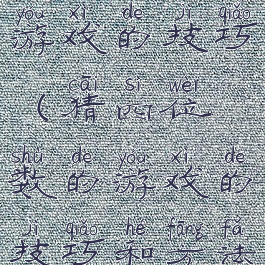 yóu xì de jì qiǎo
游戏的技巧
cāi sì wèi
(猜四位
shù de yóu xì de
数的游戏的
jì qiǎo hé fāng fǎ
技巧和方法